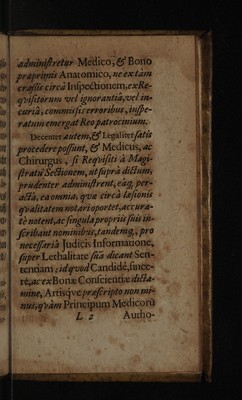 administretur Medico, & Bono
præprimis Anatomico, ne ex tam
crassis circà Inspectionem, exRe-
qvisitorum vel ignorantiâ, vel in-
curiâ, commissis erroribus, inspe-
ratum emergat Reo patrocinium.
Decenter autem, & Legaliter satis
procedere possunt, & Medicus, ac
Chirurgus, si Reqvisiti à Magi-
stratu Sectionem, ut suprà dictum,
prudenter administrent, eâq; per-
actâ, ea omnia, qvæ circà læsionis
qvalitatem notari oportet, accura-
tè notent, ac singula propriis suis in-
scribant nominibus, tandemq;, pro
necessariâ Judicis Informatione,
super Lethalitate suâ dicant Sen-
tentiam; id qvod Candidè, since-
rè, ac ex Bonæ Conscientiæ dicta-
mine, Artisqve præscripto non mi-
nus, qvàm Principum Medicorũ
L 2 Autho-